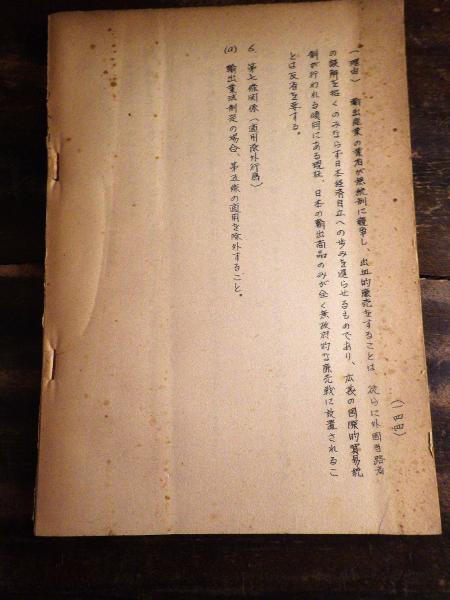 (一四四)
(理由) 輸出産業の業者が無統制に競争し、出血的廉売をすることは、徒らに外国当路者
の誤解を招くのみならず日本経済自立への歩みを遅らせるものであり、広義の国際的貿易統
制が行われる傾向にある現在、日本の輸出商品のみが全く無政府的な廉売戦に放置されるこ
とは反省を要する。
6. 第七條関係(適用除外行為)
(a) 輸出業法制定の場合、第五條の適用を除外すること。